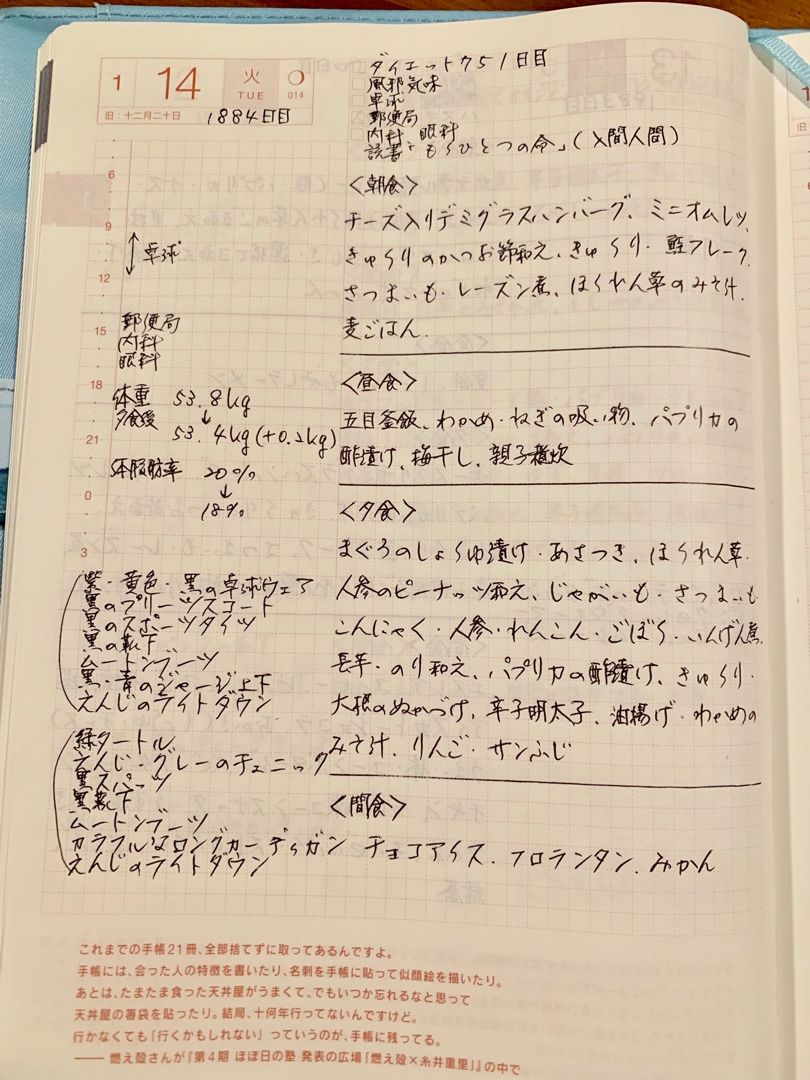 1 14 火 TUE 014
旧:十二月二十日 1884日目
ダイエット751日目
風邪気味
卓球
郵便局
内科 眼科
読書「もうひとつの命」(入間人間)
6
9
卓球
12
15
郵便局
内科
眼科
18
体重 53.8kg
夕食後 ↓
53.4kg(+0.2kg)
21
体脂肪率 20%
↓
0
18%
3
<朝食>
チーズ入りデミグラスハンバーグ、ミニオムレツ、
きゅうりのかつお節和え、きゅうり・鮭フレーク、
さつまいも・レーズン煮、ほうれん草のみそ汁、
麦ごはん、
<昼食>
五目釜飯、わかめ・ねぎの吸い物、パプリカの
酢漬け、梅干し、親子種炊
<夕食>
まぐろのしょうゆ漬け・あさつき、ほうれん草・
人参のピーナッツ和え、じゃがいも・さつまいも・
こんにゃく・人参・れんこん・ごぼう・いんげん煮、
長芋・のり和え、パプリカの酢漬け、きゅうり・
大根のぬかづけ、辛子明太子、油揚げ・わかめの
みそ汁、りんご・サンふじ
<間食>
チョコアイス、フロランタン、みかん
紫・黄色・黒の卓球ウェア
黒のプリーツスコート
黒のスポーツタイツ
黒の靴下
ムートンブーツ
黒・青のジャージ上下
えんじのライトダウン
緑タートル
えんじ・グレーのチュニック
黒スパッツ
黒靴下
ムートンブーツ
カラフルなロングカーディガン
えんじのライトダウン
これまでの手帳21冊、全部捨てずに取ってあるんですよ。
手帳には、会った人の特徴を書いたり、名刺を手帳に貼って似顔絵を描いたり。
あとは、たまたま食った天丼屋がうまくて、でもいつか忘れるなと思って
天丼屋の箸袋を貼ったり。結局、十何年行ってないんですけど。
行かなくても「行くかもしれない」っていうのが、手帳に残ってる。
―― 燃え殻さんが『第4期 ほぼ日の塾 発表の広場「燃え殻×糸井重里」』の中で